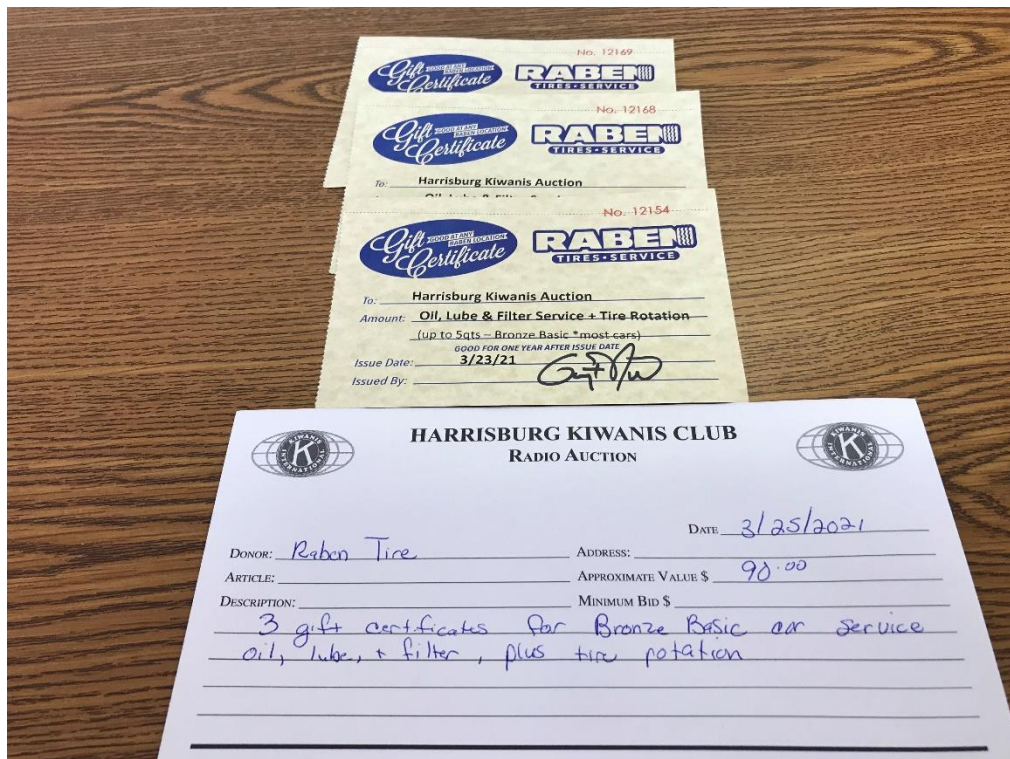 No. 12169
Gift Certificate
GOOD AT ANY
RABEN LOCATION
RABEN
TIRES•SERVICE
No. 12168
Gift Certificate
GOOD AT ANY
RABEN LOCATION
RABEN
TIRES•SERVICE
To: Harrisburg Kiwanis Auction
Oil, Lube & Filter Service
No. 12154
Gift Certificate
GOOD AT ANY
RABEN LOCATION
RABEN
TIRES•SERVICE
To: Harrisburg Kiwanis Auction
Amount: Oil, Lube & Filter Service + Tire Rotation
(up to 5qts – Bronze Basic *most cars)
GOOD FOR ONE YEAR AFTER ISSUE DATE
Issue Date: 3/23/21
Issued By:
HARRISBURG KIWANIS CLUB
RADIO AUCTION
KIWANIS
K
INTERNATIONAL
KIWANIS
K
INTERNATIONAL
DATE 3/25/2021
DONOR: Raben Tire ADDRESS:
ARTICLE: APPROXIMATE VALUE $ 90.00
DESCRIPTION: MINIMUM BID $
3 gift certificates for Bronze Basic car service
oil, lube, + filter, plus tire rotation